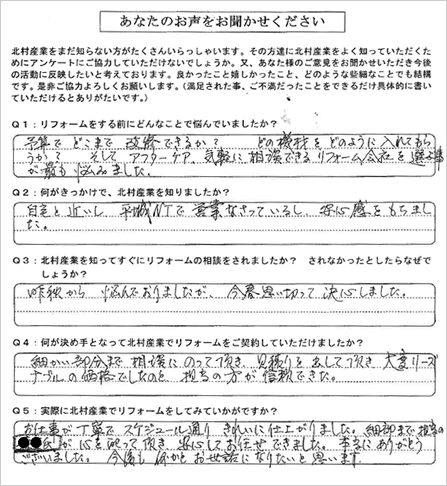 あなたのお声をお聞かせください
北村産業をまだ知らない方がたくさんいらっしゃいます。その方達に北村産業をよく知っていただくため
にアンケートにご協力していただけないでしょうか。又、あなた様のご意見をお聞かせいただき今後
の活動に反映したいと考えております。良かったこと嬉しかったこと、どのような些細なことでも結構
です。是非ご協力よろしくお願いします。(満足された事、ご不満だったことをできるだけ具体的に書い
ていただけるとありがたいです。)
Q1:リフォームをする前にどんなことで悩んでいましたか?
予算で どこまで 改修できるか? どの機材を どのように入れてもら
うか? そして アフターケア、気軽に相談できるリフォーム会社を選ぶ事
が最も悩みました。
Q2:何がきっかけで、北村産業を知りましたか?
自宅と近いし、平城NTで営業なさっているし、安心感をもちまし
た。
Q3:北村産業を知ってすぐにリフォームの相談をされましたか? されなかったとしたらなぜで
しょうか?
昨秋から 悩んでおりましたが、今春思い切って決心しました。
Q4:何が決め手となって北村産業でリフォームをご契約していただけましたか?
細かい部分まで相談にのって頂き、見積りを出して頂き 大変リーズ
ナブルの価格でしたのと 担当の方が信頼できた。
Q5:実際に北村産業でリフォームをしてみていかがですか?
お仕事が丁寧で スケジュール通り きれいに仕上がりました。細部まで担当の
●●氏が心を配って頂き 安心してお任せできました。本当にありがとう
ございました。今後も何かとお世話になりたいと思います。